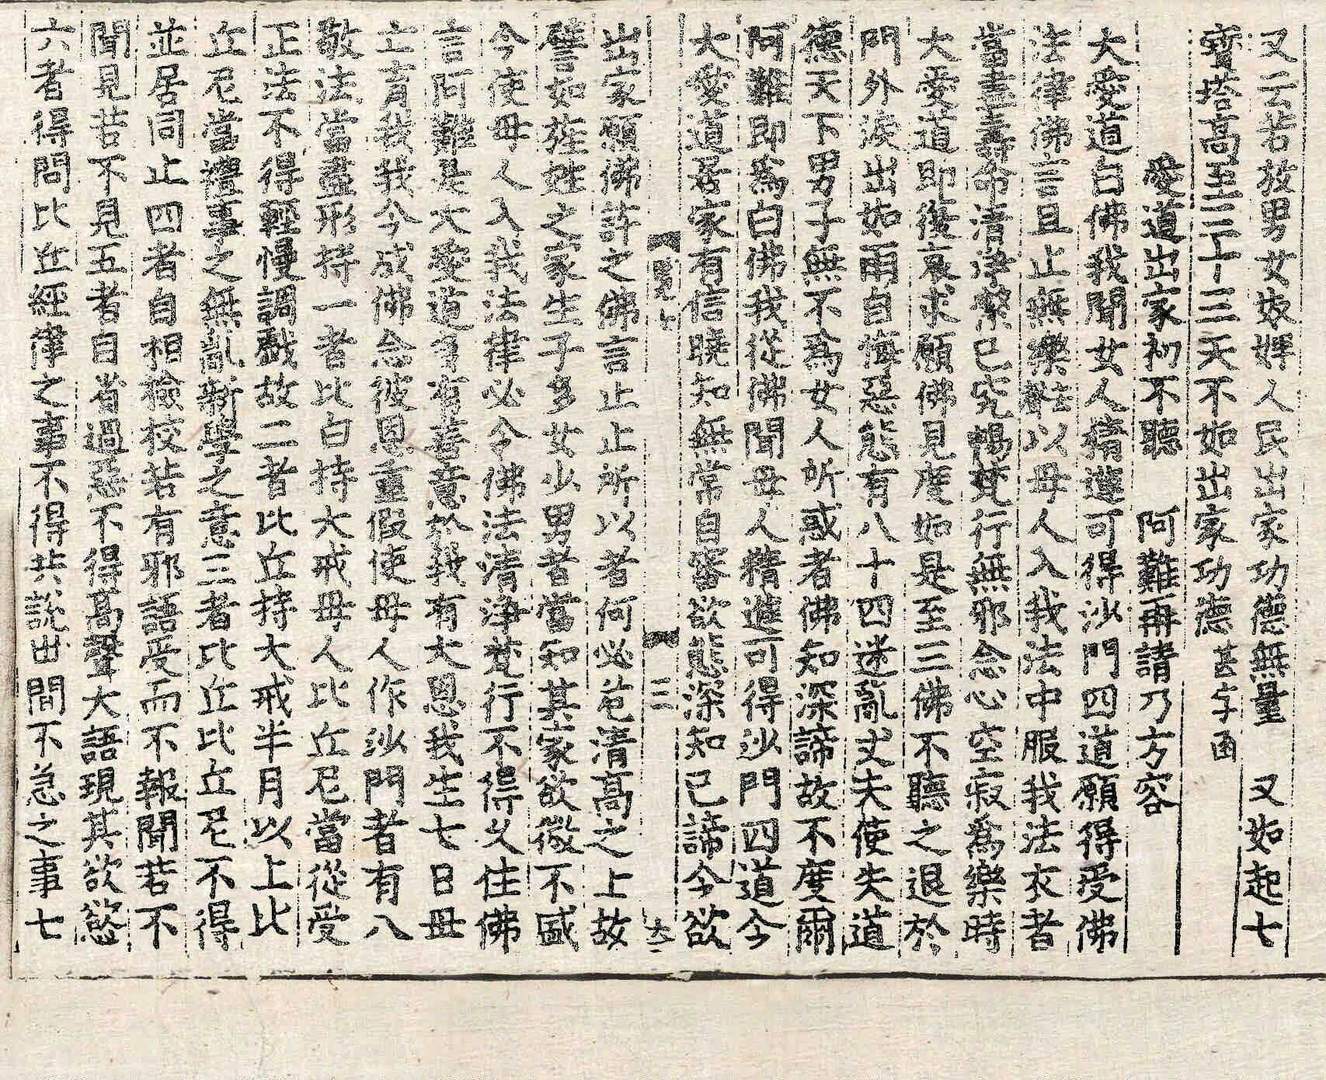 又云若放男女奴婢人民出家功德無量　又如起七
寶塔高至三十三天不如出家功德甚字函
愛道出家初不聽　阿難再請乃方容
大愛道白佛我聞女人精進可得沙門四道願得受佛
法律佛言且止無樂以母人入我法中服我法衣者
當盡壽命清淨潔已究暢梵行無邪念心空寂爲樂時
大愛道即復哀求願佛見度如是至三佛不聽之退於
門外淚出如雨自悔惡態有八十四迷亂丈夫使失道
德天下男子無不爲女人所惑者佛知深諦故不度爾
阿難即爲白佛我從佛聞母人精進可得沙門四道今
大愛道居家有信曉知無常自審欲態深知已諦今欲
三
出家願佛許之佛言止止所以者何必危清高之上故
譬如族姓之家生子多女少男者當知其家欲微不盛
今使母人入我法律必令佛法清淨梵行不得久住佛
言阿難是大愛道多有善意於我有大恩我生七日母
亡育我我今成佛念彼恩重假使母人作沙門者有八
敬法當盡形持一者比白持大戒母人比丘尼當從受
正法不得輕慢調戲故二者比丘持大戒半月以上比
丘尼當禮事之無亂新學之意三者比丘比丘尼不得
並居同止四者自相檢校若有邪語受而不報聞若不
聞見若不見五者自省過惡不得高聲大語現其欲慾
六者得問比丘經律之事不得共說世間不急之事七